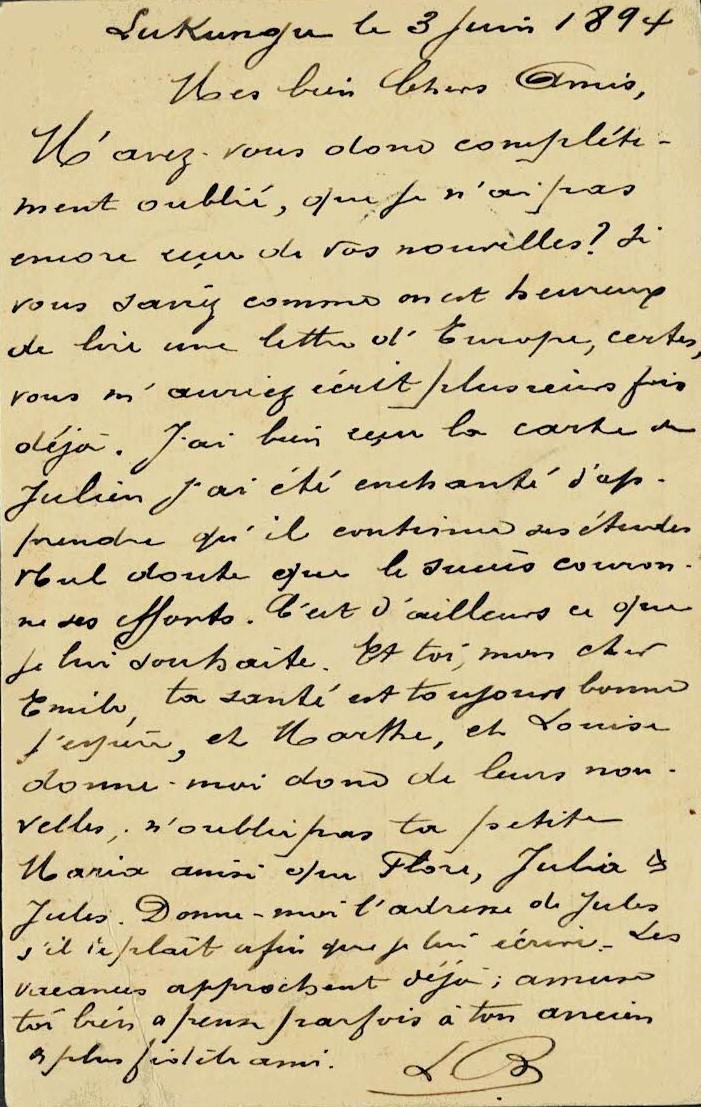 Lukungu le 3 Juin 1894
Mes bien Chers Amis,
M'avez-vous donc complète-
ment oublié, que je n'ai pas
encore reçu de vos nouvelles? Si
vous saviez comme on est heureux
de lire une lettre d'Europe, certes,
vous m'auriez écrit plusieurs fois
déjà. J'ai bien reçu la carte de
Julien j'ai été enchanté d'ap-
prendre qu'il continue ses études
Nul doute que le succès couron-
ne ses efforts. C'est d'ailleurs ce que
je lui souhaite. Et toi, mon cher
Emile, ta santé est toujours bonne
j'espère, et Marthe, et Louise
donne-moi donc de leurs nou-
velles, n'oublie pas ta petite
Maria ainsi que Flore, Julia &
Jules. Donne-moi l'adresse de Jules
s'il te plaît afin que je lui écrive. Les
vacances approchent déjà; amuse
toi bien & pense parfois à ton ancien
& plus fidèle ami.
LB